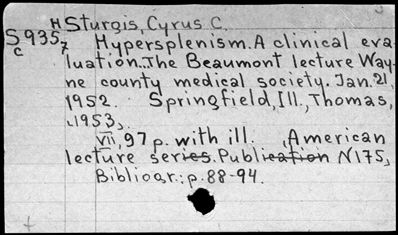 H Sturgis, Cyrus C.
S935 7 Hypersplenism. A clinical eva-
c luation..The Beaumont lecture Way-
ne county medical society. Jan. 21,
1952. Springfield, Ill., Thomas,
1953.
VII, 97 p. with ill. (American
lecture series. Publication N175)
Bibliogr.: p. 88-94.